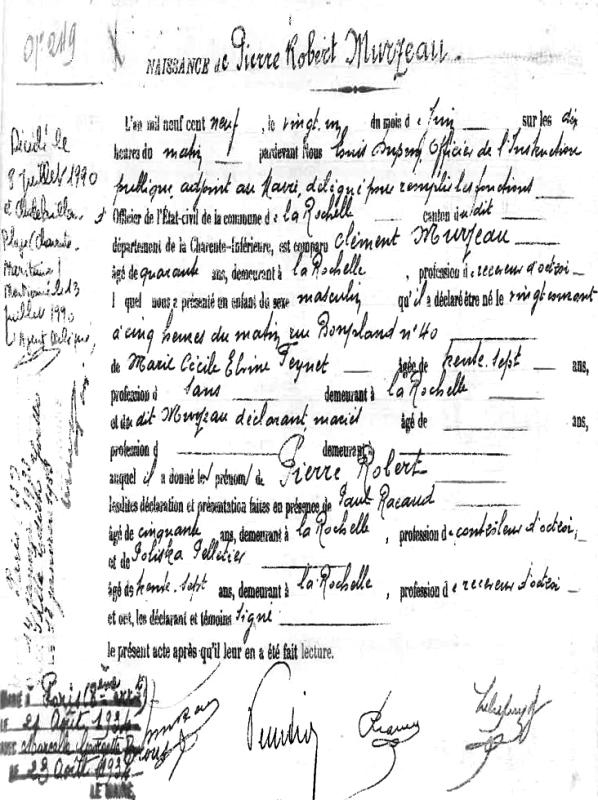 N° 219
NAISSANCE de Pierre Robert Murzeau.
L'an mil neuf cent neuf, le vingt un du mois de Juin sur les dix
heures du matin pardevant Nous Louis Officier de l'Instruction
publique, adjoint au Maire, délégué pour remplir les fonctions
Officier de l'État-civil de la commune de la Rochelle canton dudit
département de la Charente-Inférieure, est comparu Clément Murzeau
âgé de quarante ans, demeurant à la Rochelle, profession de receveur d'octroi
lequel nous a présenté un enfant du sexe masculin qu'il a déclaré être né le vingt courant
à cinq heures du matin rue Bonpland n° 40
de Marie Cécile Elvine Peynet âgée de trente-sept ans,
profession d sans demeurant à la Rochelle
et du dit Murzeau déclarant, mariés âgé de ans,
profession d demeurant
auquel il a donné les prénoms de Pierre Robert
lesdites déclaration et présentation faites en présence de Paul Racaud
âgé de cinquante ans, demeurant à la Rochelle, profession de contrôleur d'octroi,
et de Poliska Pelletier
âgé de trente-sept ans, demeurant à la Rochelle, profession de receveur d'octroi
et ont, les déclarant et témoins signé
le présent acte après qu'il leur en a été fait lecture.
Décédé le
8 juillet 1990
à Châtelaillon-
Plage (Charente
Maritime)
Mentionné le 13
juillet 1990
L'Agent délégué,
MARIÉ à Paris (8ème arrt)
LE 21 Août 1934
AVEC Marcelle
LE 23 Août 1934
LE MAIRE,